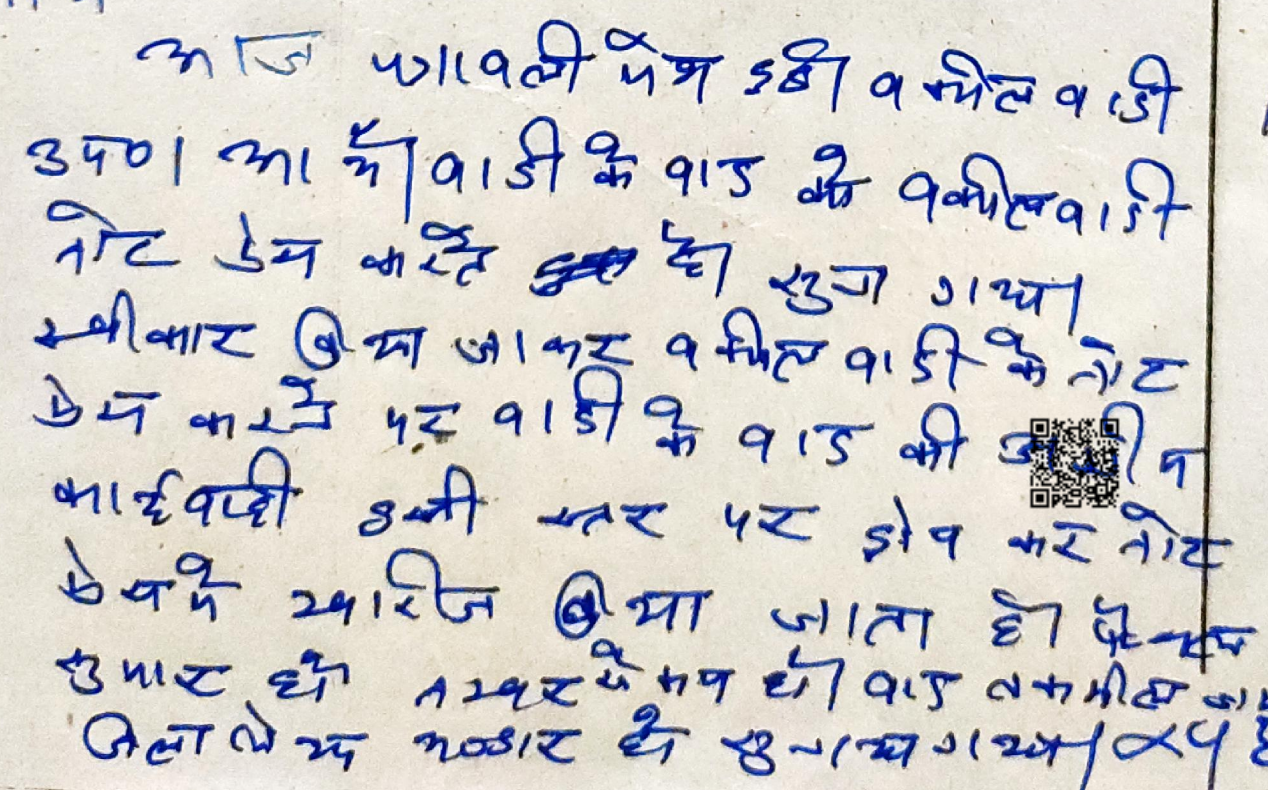 आज पत्रावली पेश हुई। वकील वादी
उपo। आये। वादी के वाद को वकील वादी
नोट प्रेस करते है। सुना गया।
स्वीकार किया जाकर वकील वादी के नोट
प्रेस करने पर वादी के वाद की
कार्यवाही इसी स्तर पर ड्रोप कर नोट
प्रेस में खारिज किया जाता है।
सुमार हो नम्बर से कम हो। वाद तकमील
सुनाया गया।